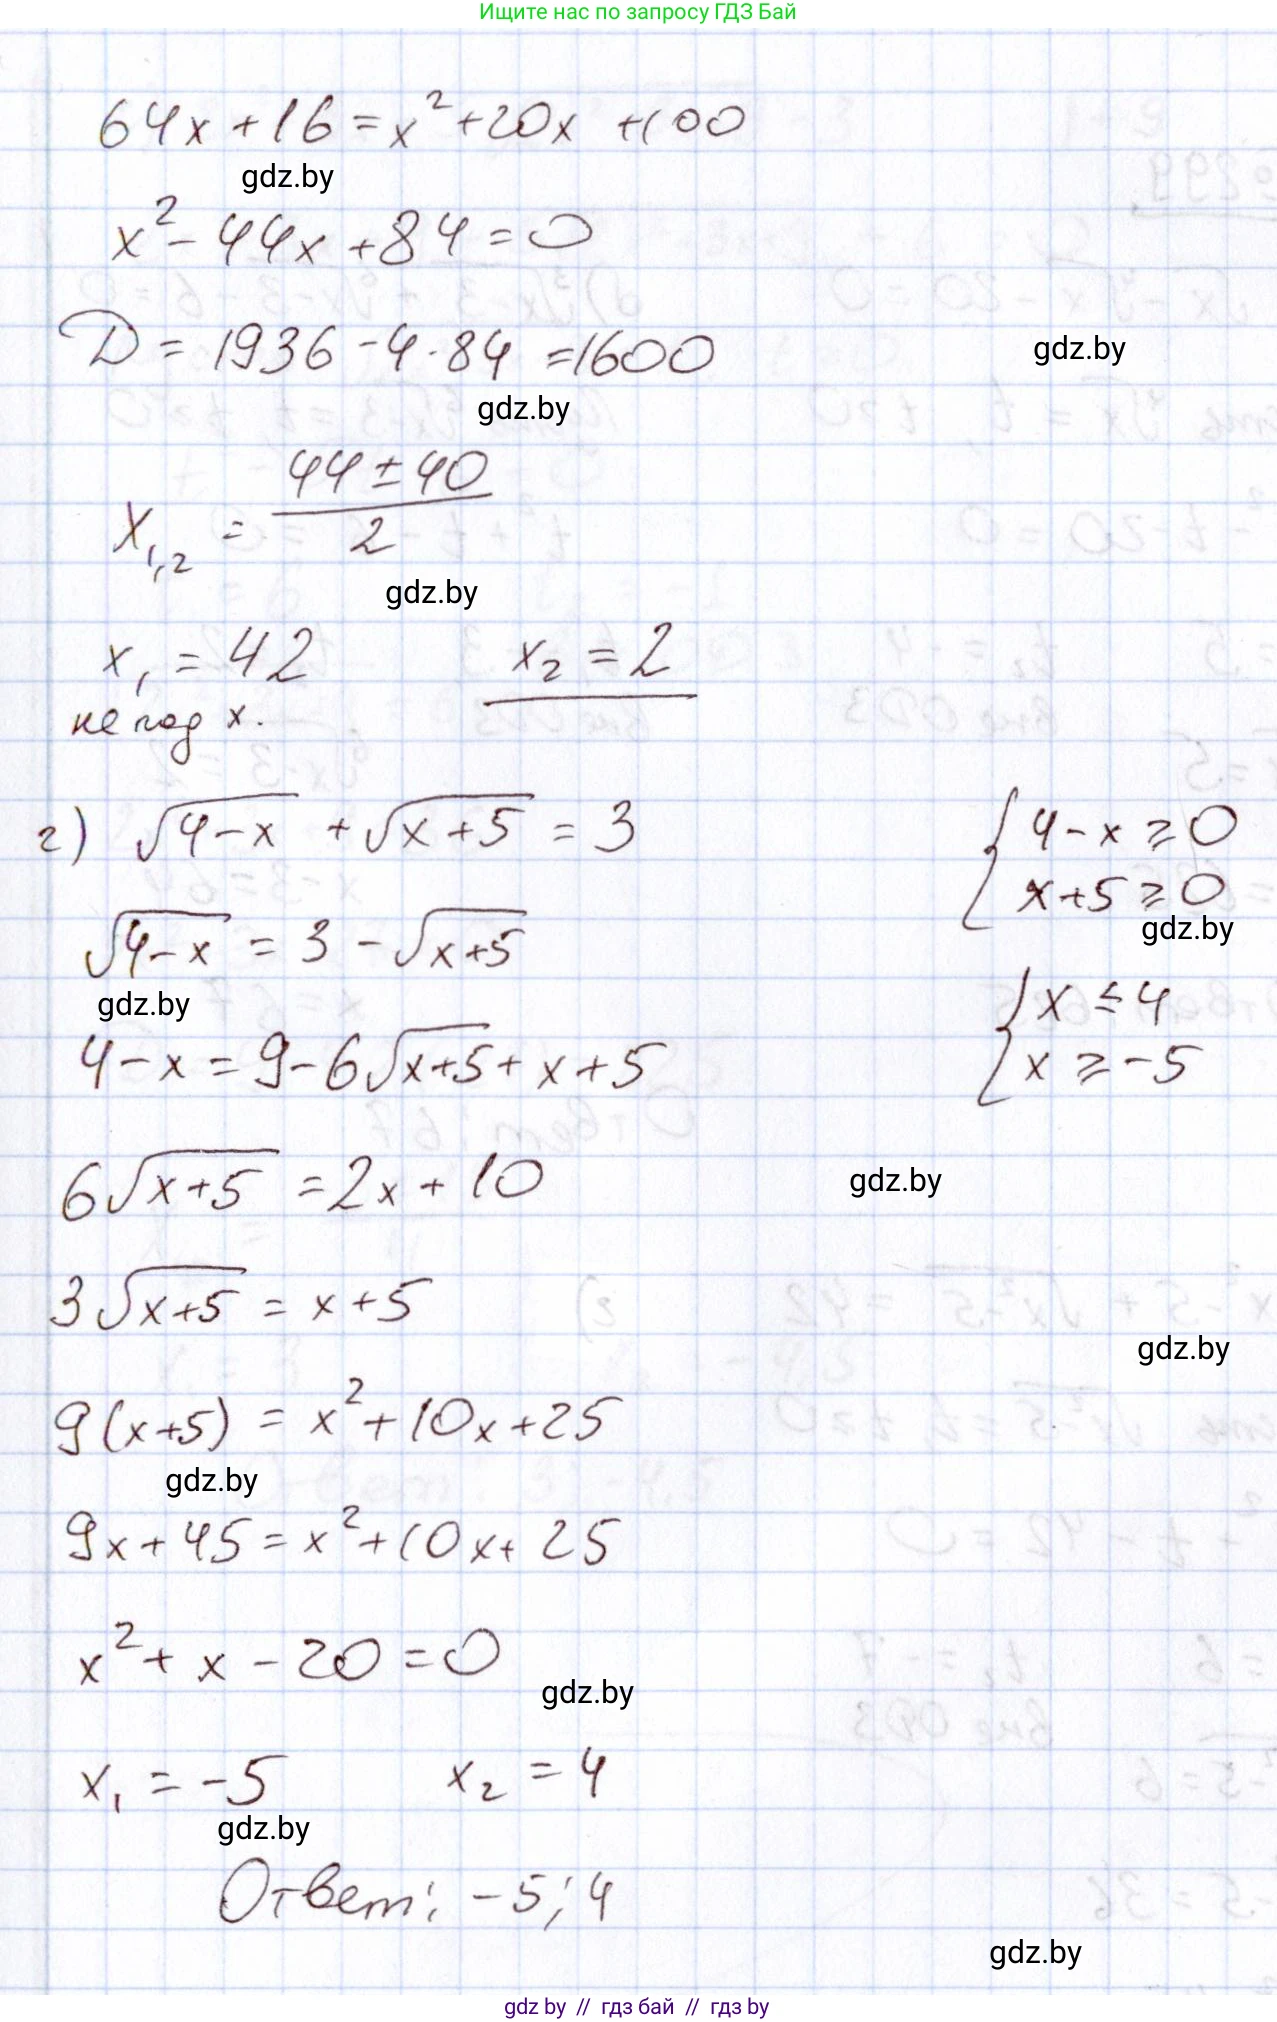 Ищите нас по запросу ГДЗ Бай
64x + 16 = x² + 20x + 100
gdz.by
x² - 44x + 84 = 0
D = 1936 - 4 · 84 = 1600
gdz.by
gdz.by
x₁,₂ = (44 ± 40) / 2
gdz.by
x₁ = 42 x₂ = 2
не подх.
г) √(4-x) + √(x+5) = 3 { 4-x ≥ 0
x+5 ≥ 0
gdz.by
√(4-x) = 3 - √(x+5)
gdz.by
{ x ≤ 4
x ≥ -5
4-x = 9 - 6√(x+5) + x + 5
6√(x+5) = 2x + 10
gdz.by
3√(x+5) = x + 5
gdz.by
9(x+5) = x² + 10x + 25
gdz.by
9x + 45 = x² + 10x + 25
x² + x - 20 = 0
gdz.by
x₁ = -5 x₂ = 4
gdz.by
Ответ: -5; 4
gdz.by
gdz by // гдз бай // гдз by